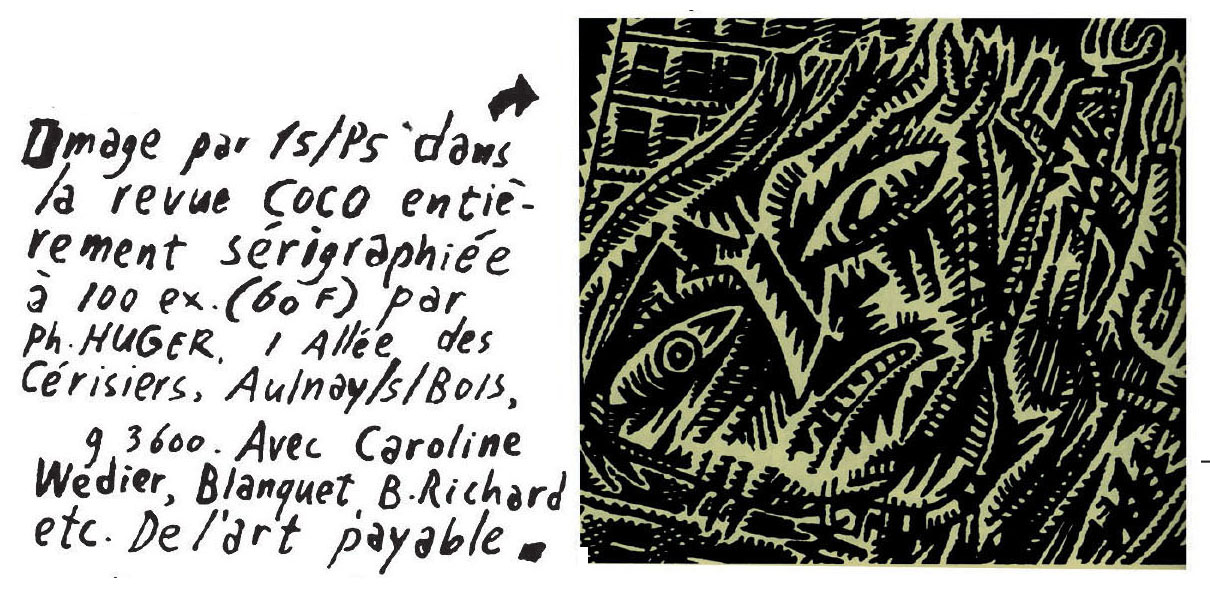 Image par 1s/Ps dans
la revue COCO entiè-
rement sérigraphiée
à 100 ex. (60 F) par
Ph. HUGER, 1 Allée des
Cérisiers, Aulnay/s/Bois,
93600. Avec Caroline
Wedier, Blanquet, B. Richard
etc. De l'art payable.